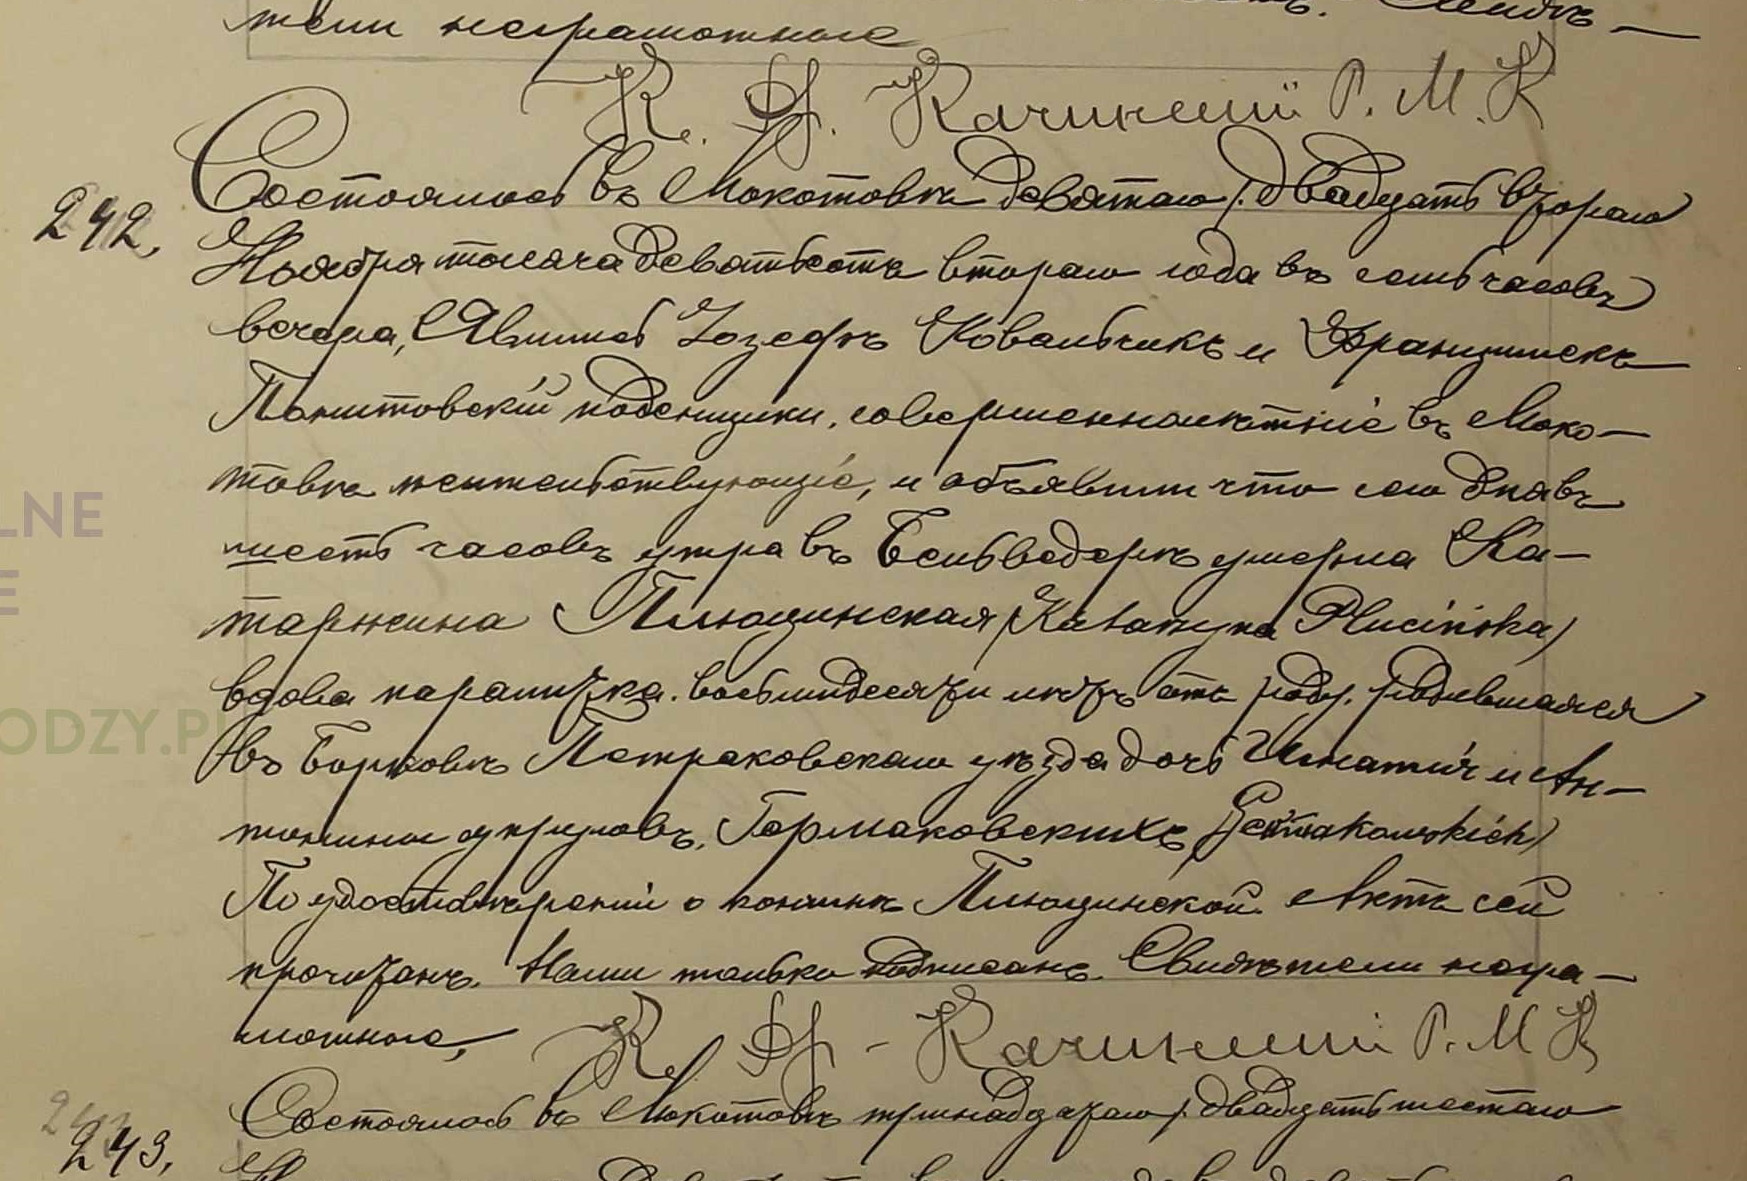 тели неграмотные
К. Ф. Качинскій Р. М. К
242. Состоялось въ Мокотовѣ девятаго/двадцать втораго
Ноября тысяча девятьсотъ втораго года въ семь часовъ
вечера, Явились Іозефъ Ковальчикъ и Францишекъ
поденщики, совершеннолѣтніе въ Моко-
товѣ жительствующіе, и объявили что сего дня въ
шесть часовъ утра въ Бельведерѣ умерла Ка-
таржина Плюцинская (Katarzyna Plucińska)
вдова, восьмидесяти лѣтъ отъ роду, родившаяся
въ Петраковскаго уѣзда дочь Игнатія и Ан-
тонины супруговъ, Гермаковскихъ (Germakowskich)
По удостовѣреніи о кончинѣ Плюцинской. Актъ сей
прочитанъ, Нами только подписанъ. Свидѣтели негра-
мотные,
К. Ф - Качинскій Р. М К
243. Состоялось въ Мокотовѣ тринадцатаго/двадцать шестаго
LNE
E
ODZY.PL